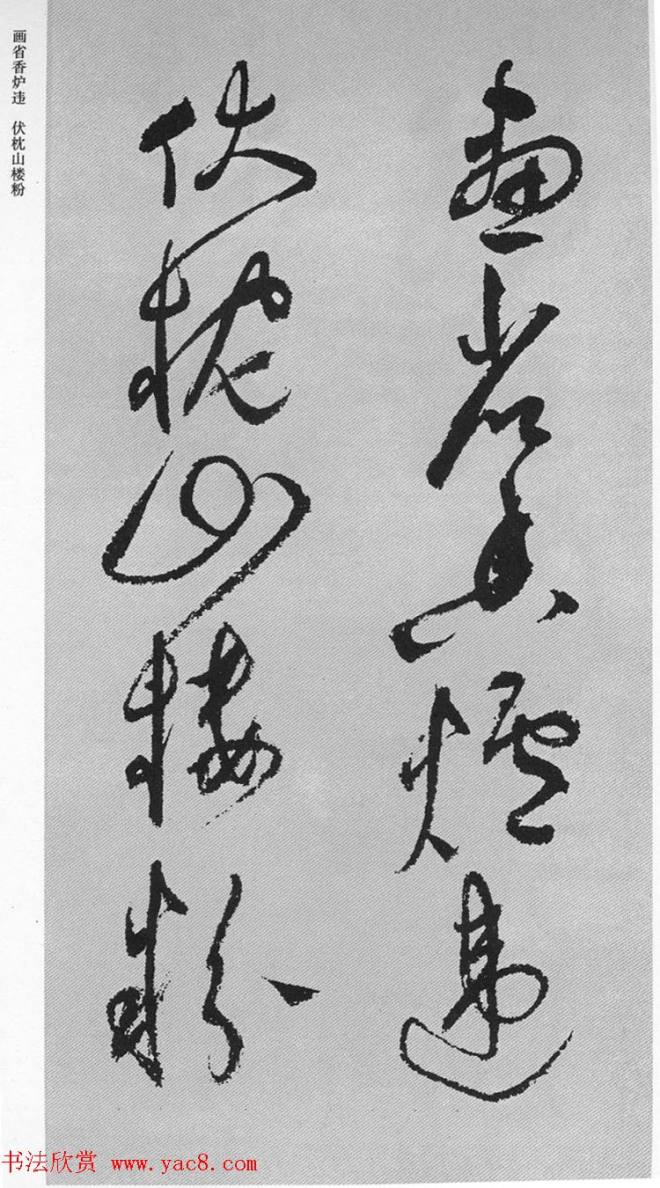 畫省香爐違
伏枕山樓粉
画省香炉违 伏枕山楼粉
书法欣赏 www.yac8.com